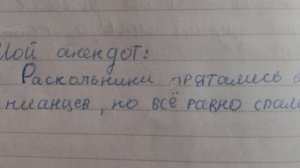 Мой анекдот:
Раскольники прятались
нианцев, но всё равно спали